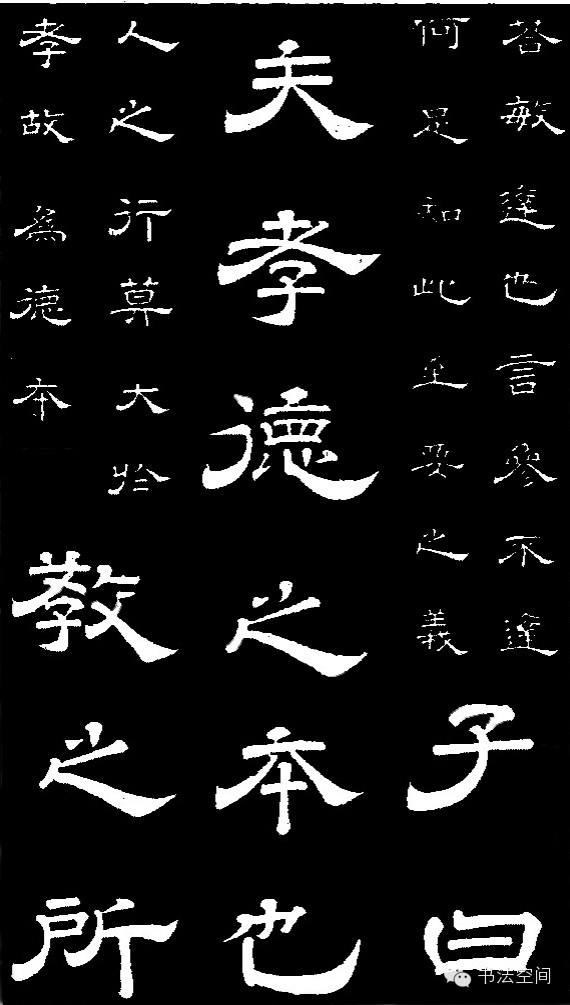 荅敏達也言參不達
何足知此至要之義
子曰
夫孝德之本也
人之行莫大於
孝故為德本
教之所
书法空间